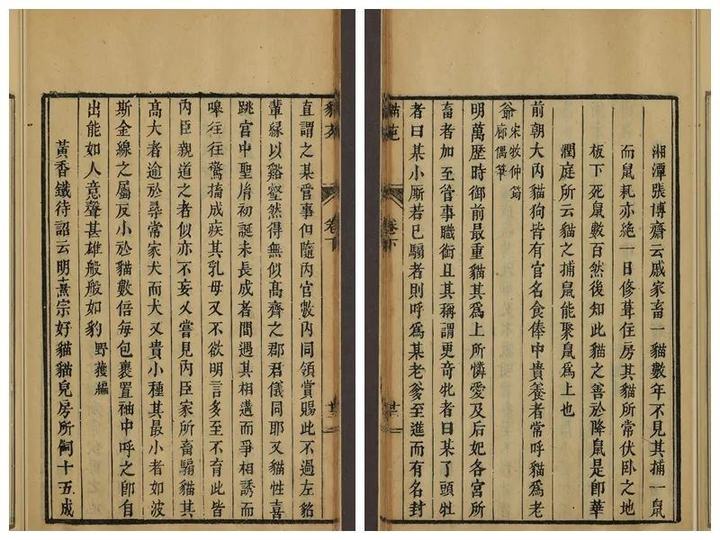 湘潭張博齋云戚家畜一貓數年不見其捕一鼠
而鼠耗亦絶一日修葺住房其貓所常伏卧之地
板下死鼠數百然後知此貓之善於降鼠是卽華
潤庭所云貓之捕鼠能聚鼠為上也
前朝大內貓狗皆有官名食俸中貴養者常呼貓為老
爺宋牧仲筠廊偶筆
明萬歷時御前最重貓其為上所憐愛及后妃各宮所
畜者加至管事職銜且其稱謂更奇牝者曰某丫頭牡
者曰某小厮若已騸者則呼為某老爹至進而有名封
貓苑
卷下
廿三
直謂之某管事但隨內官數內同領賞賜此不過左貂
輩緣以谿壑然得無似高齊之郡君儀同耶又貓性喜
跳宮中聖胤初誕未長成者間遇其相遘而爭相誘而
嘷往往驚搐成疾其乳母又不欲明言多至不育此皆
內臣親道之者似亦不妄乂嘗見內臣家所畜騸貓其
高大者逾於尋常家犬而犬又貴小種其最小者如波
斯金線之屬反小於貓數倍每包裹置袖中呼之卽自
出能如人意聲甚雄般般如豹野獲編
黃香鐵待詔云明熹宗好貓貓兒房所飼十五成
貓苑
卷下
廿三